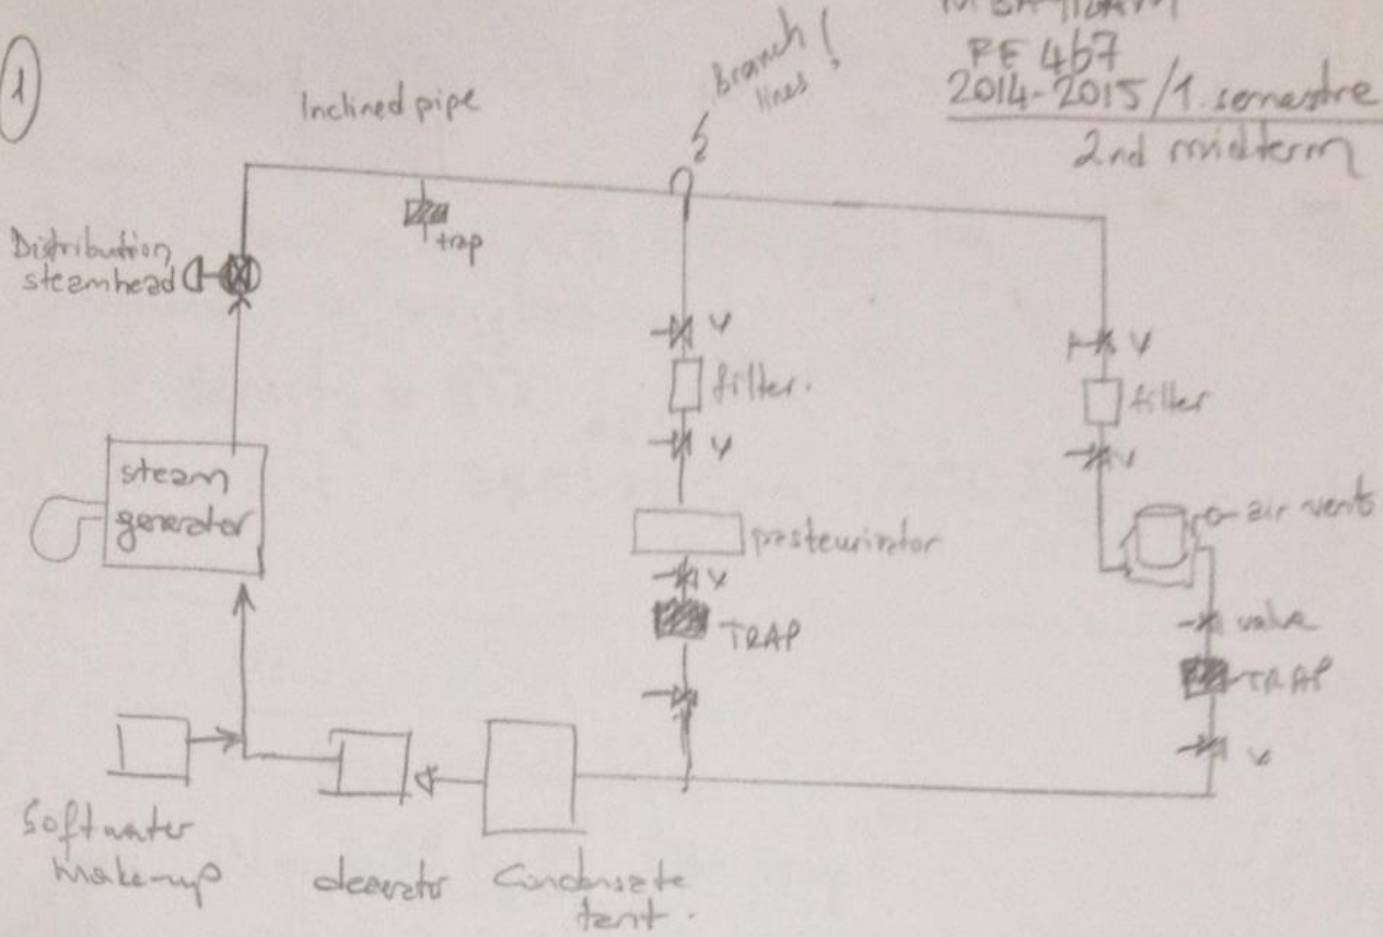 1
FE 467
2014-2015/1. semestre
2nd midterm
Inclined pipe
Branch
lines !
Distribution
steamhead
trap
V
filter.
V
V
filter
V
steam
generator
air vent
pasteurizator
V
TRAP
valve
TRAP
V
Softwater
make-up
deaerator
Condensate
tant.